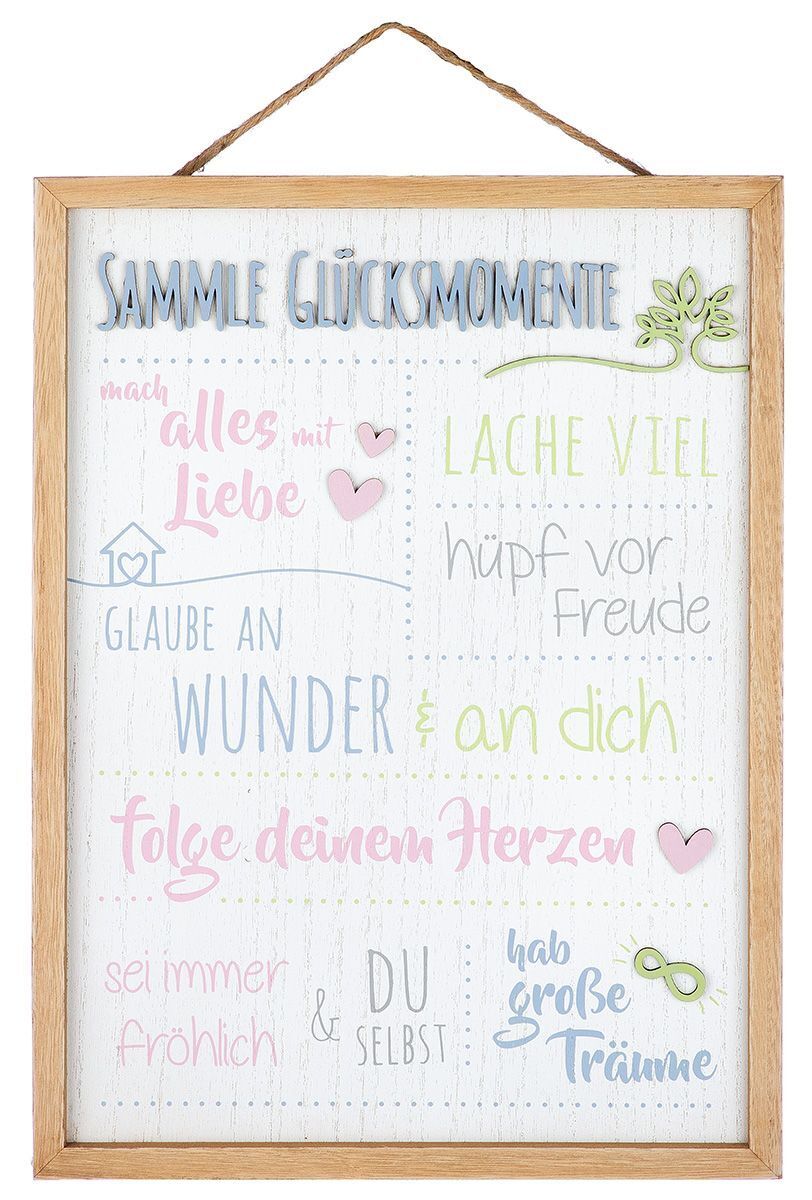 SAMMLE GLÜCKSMOMENTE
mach
alles mit
Liebe
LACHE VIEL
hüpf vor
Freude
GLAUBE AN
WUNDER & an dich
folge deinem Herzen
sei immer
fröhlich
& DU
SELBST
hab
große
Träume